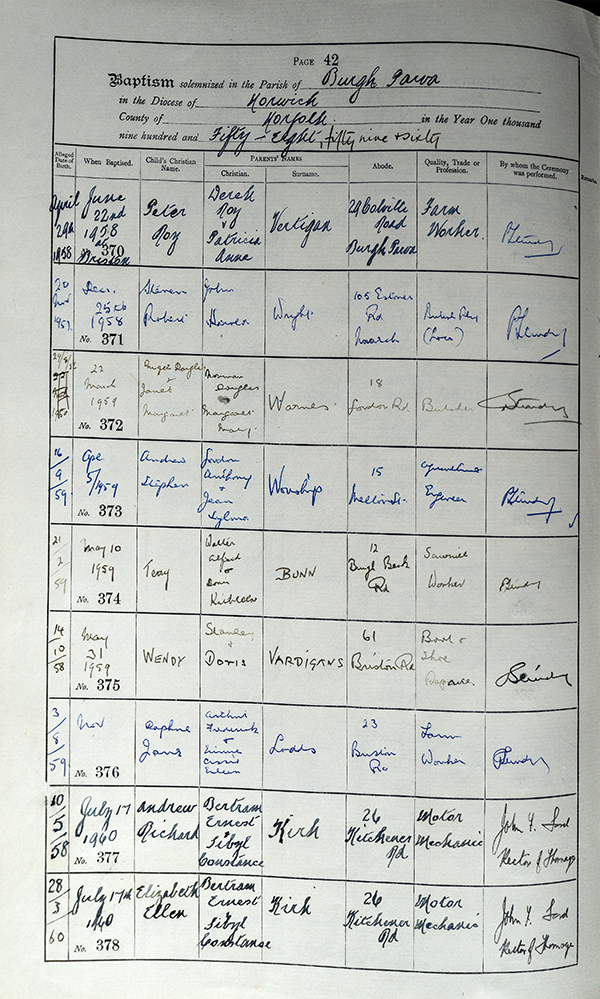 PAGE 42
Baptism solemnized in the Parish of Burgh Parva
in the Diocese of Norwich
County of Norfolk in the Year One thousand
nine hundred and Fifty-Eight, fifty nine & sixty
Alleged Date of Birth. When Baptised. Child's Christian Name. PARENTS' NAMES Christian. Surname. Abode. Quality, Trade or Profession. By whom the Ceremony was performed. Remarks.
April 29th 1958
June 22nd 1958 at Briston
No. 370
Peter Roy
Derek Roy & Patricia Anne
Vertigan
29 Colville Road Burgh Parva
Farm Worker.
20 Nov 1957
Dec. 25th 1958
No. 371
Steven Robert
John
Wright
105
Rd
(Loco)
22 March 1959
No. 372
Janet Margaret
Norman Douglas Margaret Mary
Warnes
18 London Rd
Butcher
16/9/59
5/1959
No. 373
Andrew Stephen
Gordon Anthony & Jean Sylvia
Worship
15
Engineer
21/2/59
May 10 1959
No. 374
Terry
Walter Alfred & Doris
BUNN
12 Burgh Beck Rd
Sawmill Worker
14/10/58
May 31 1959
No. 375
WENDY
Stanley & Doris
VARDIGANS
61 Briston Rd
Boot & Shoe Repairer
3/8/59
Nov
No. 376
Daphne Jane
Arthur Frederick & Eileen
23 Briston Rd
Farm Worker
10/5/58
July 17 1960
No. 377
Andrew Richard
Bertram Ernest Sibyl Constance
Kirk
26 Kitchener Rd
Motor Mechanic
John Y.
Rector of Thornage
28/3/60
July 17th 1960
No. 378
Elizabeth Ellen
Bertram Ernest Sibyl Constance
Kirk
26 Kitchener Rd
Motor Mechanic
John Y.
Rector of Thornage